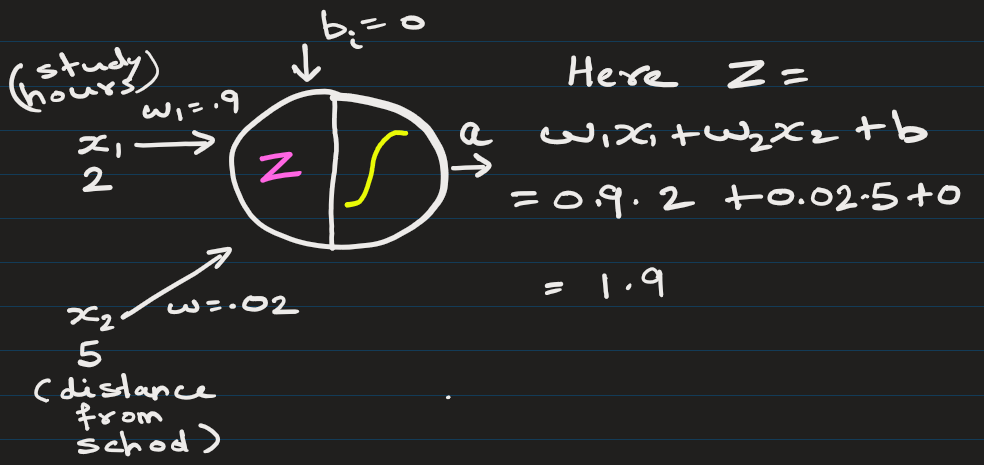 bᵢ = 0
(study
hours)
w₁ = .9
x₁
2
Z
a
x₂
w = .02
5
(distance
from
school)
Here Z =
w₁x₁ + w₂x₂ + b
= 0.9 . 2 + 0.02.5 + 0
= 1.9